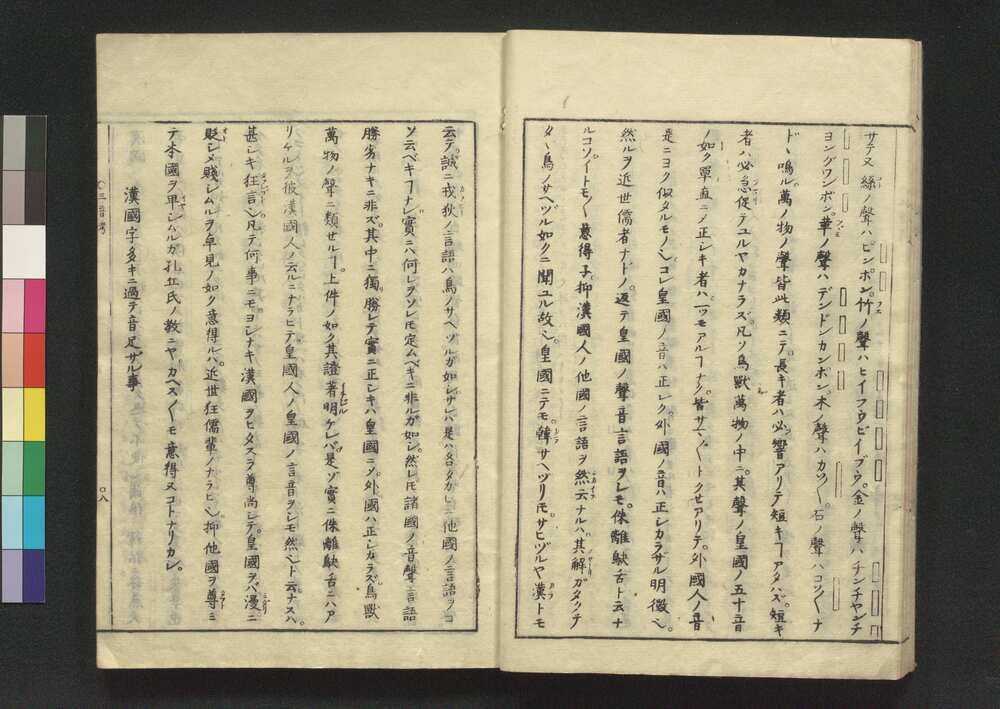 サテ又絲ノ聲ハピンポン。竹ノ聲ハヒイフウビイブウ。金ノ聲ハチンチヤンチ
ヨングワンボン。革ノ聲ハデンドンカンポン。木ノ聲ハカツ〳〵。石ノ聲ハコツ〳〵ナ
ド、鳴ル萬ノ物ノ聲皆此類ニテ。長キ者ハ必響アリテ短キヿアタハズ。短キ
者ハ必急促テユルヤカナラズ。凡ソ鳥獸萬物ノ中ニ。其聲ノ皇國ノ五十音
ノ如ク單直ニメ正シキ者ハ。一ツモアルヿナク。皆サマ〴〵トクセアリテ。外國人ノ音
是ニヨク似タルモノ也。コレ皇國ノ音ハ正シク。外國ノ音ハ正シカラザル明徴也。
然ルヲ近世儒者ナド。返テ皇國ノ聲音言語ヲシモ。侏離鴃舌ト云ナ
ルコソイトモ〳〵意得子。抑漢國人ノ他國ノ言語ヲ然云ナルハ。其解ガタクテ
タヾ鳥ノサヘヅル如クニ聞ユル故也。皇國ニテモ韓サヘヅリモサヒヅルヤ漢トモ
云テ。誠ニ戎狄ノ言語ハ鳥ノサヘヅルガ如シ。サレバ是ハ各タガヒニ他國ノ言語ヲコ
ソ云ベキヿナレ。實ニハ何レヲソレモ定ムベキニ非ルガ如シ。然レモ諸國ノ音聲言語
勝劣ナキニ非ズ。其中ニ獨勝レテ實ニ正シキハ皇國ニゾ。外國ハ正シカラズ鳥獸
萬物ノ聲ニ類セルヿ。上件ノ如ク其證著明ケレバ。是ゾ實ニ侏離鴃舌ニハア
リケルヲ。彼漢國人ノ云ルニナラヒテ。皇國人ノ皇國ノ言音ヲシモ然也ト云ナスハ。
甚シキ狂言也。凡テ何事ニモ。ヨシナキ漢國ヲヒタスラ尊尚シテ。皇國ヲバ漫ニ
貶シメ賤シムルヲ卓見ノ如ク意得ルハ。近世狂儒輩ノナラヒ也。抑他國ヲ尊ミ
テ本國ヲ卑シムルガ孔丘氏ノ敎ニヤ。カヘス〴〵モ意得又コトナリカシ。
漢國字多キニ過テ音足ザル事
〇三音考
〇八